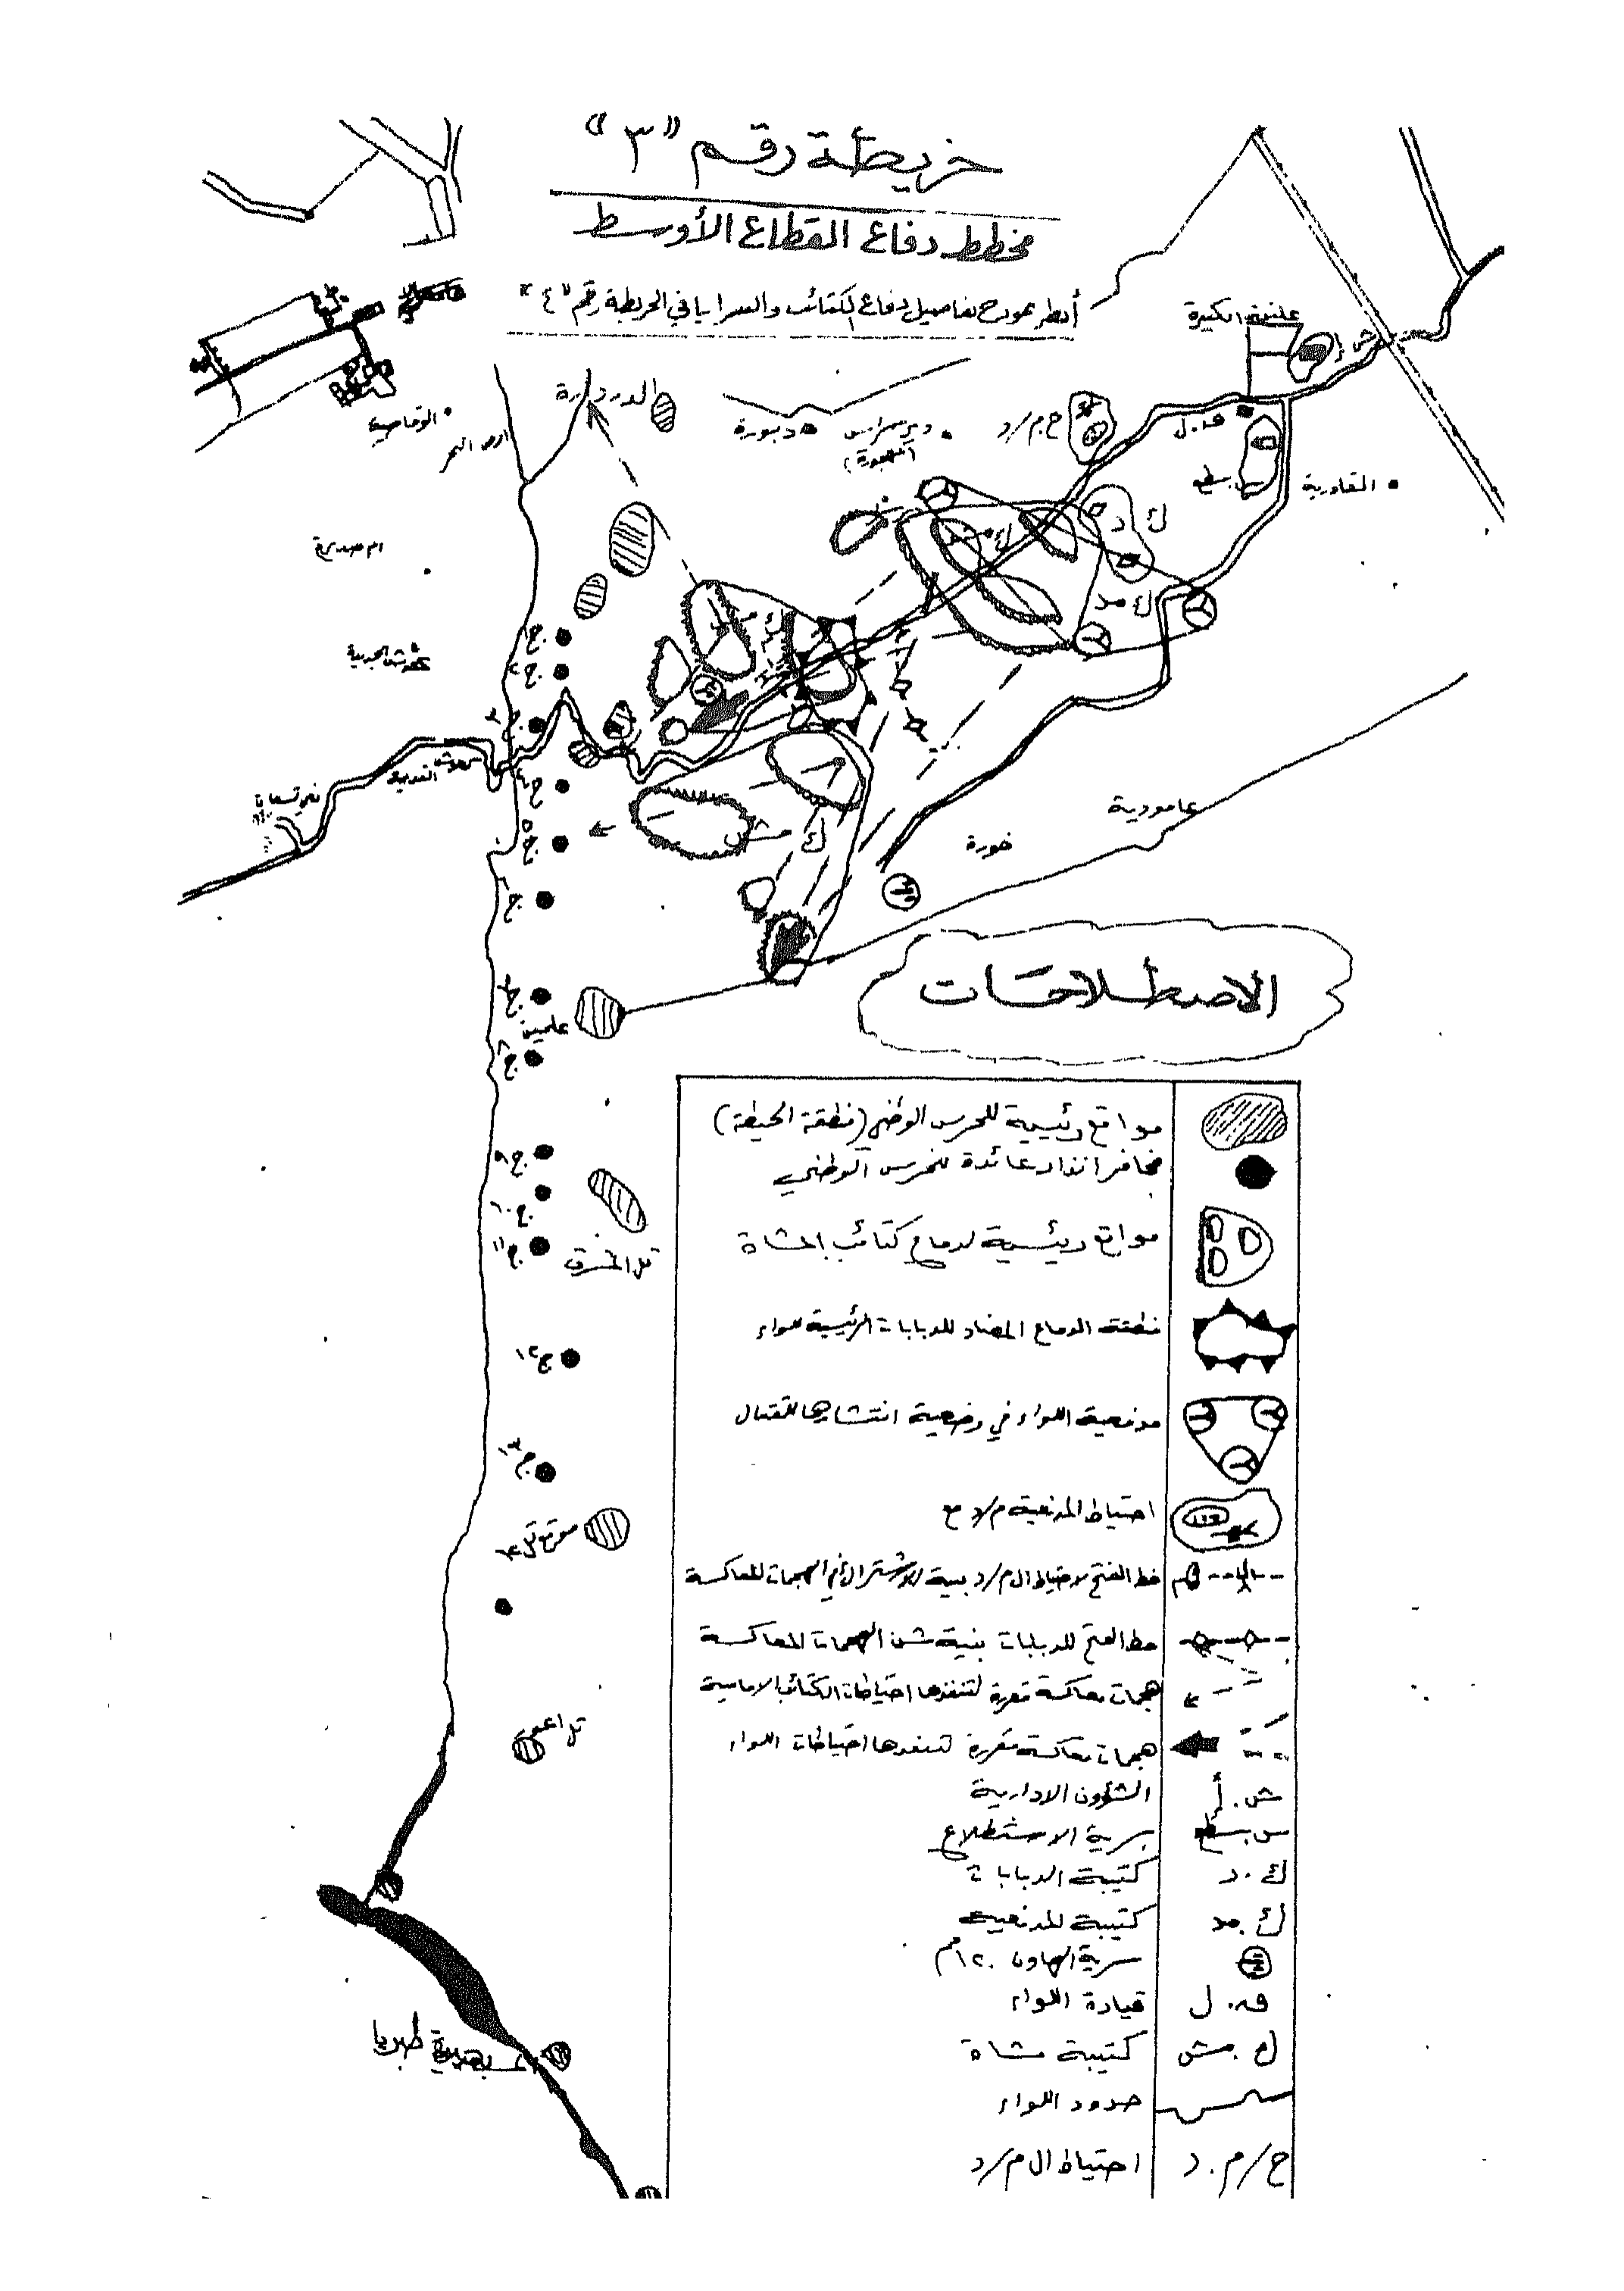 خريطة رقم "٣"
مخطط دفاع القطاع الأوسط
أنظر نموذج تفاصيل دفاع الكتائب والسرايا في الخريطة رقم "٤"
عليقة الكبيرة
الدردارة
دبورة
ح.م/د
ق.ل
القادرية
ام صديرة
ك د
ك مد
ك مش
ك مش
ج١
ج٢
ج٣
ج٤
ج٥
ج٦
ج٧
علمين
ج٨
ج٩
ج١٠
ج١١
ج١٢
ج١٣
عامودية
خورة
طبريا
الاصطلاحات
مواقع رئيسية للحرس الوطني (منطقة الحيطة)
مخافر انذار عائدة للحرس الوطني
مواقع رئيسية لدفاع كتائب المشاة
منطقة الدفاع المضاد للدبابات الرئيسية للواء
مدفعية اللواء في وضعية انتشارها للقتال
احتياط المدفعية م/د مع
خط الفتح لاحتياط ال م/د بنية الاشتراك في الهجمات المعاكسة
خط الفتح للدبابات بنية شن الهجمات المعاكسة
هجمات معاكسة مقررة لتنفذها احتياطات الكتائب الامامية
هجمات معاكسة مقررة لتنفذها احتياطات اللواء
ش.أ الشؤون الادارية
س.سطع سرية الاستطلاع
ك.د كتيبة الدبابات
ك.مد كتيبة المدفعية
سرية الهاون ١٢٠مم
ق.ل قيادة اللواء
ك.مش كتيبة مشاة
حدود اللواء
ح/م.د احتياط ال م/د